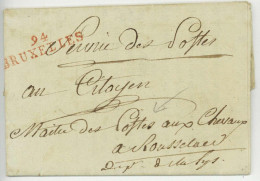 94
BRUXELLES
Service des Postes
au Citoyen
Maitre des Postes aux Chevaux
a Rousselaer
Dept. de la Lys.